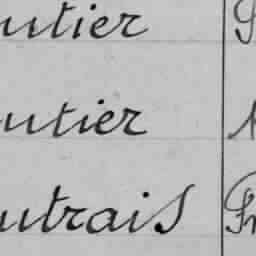 utier
utier
utrais